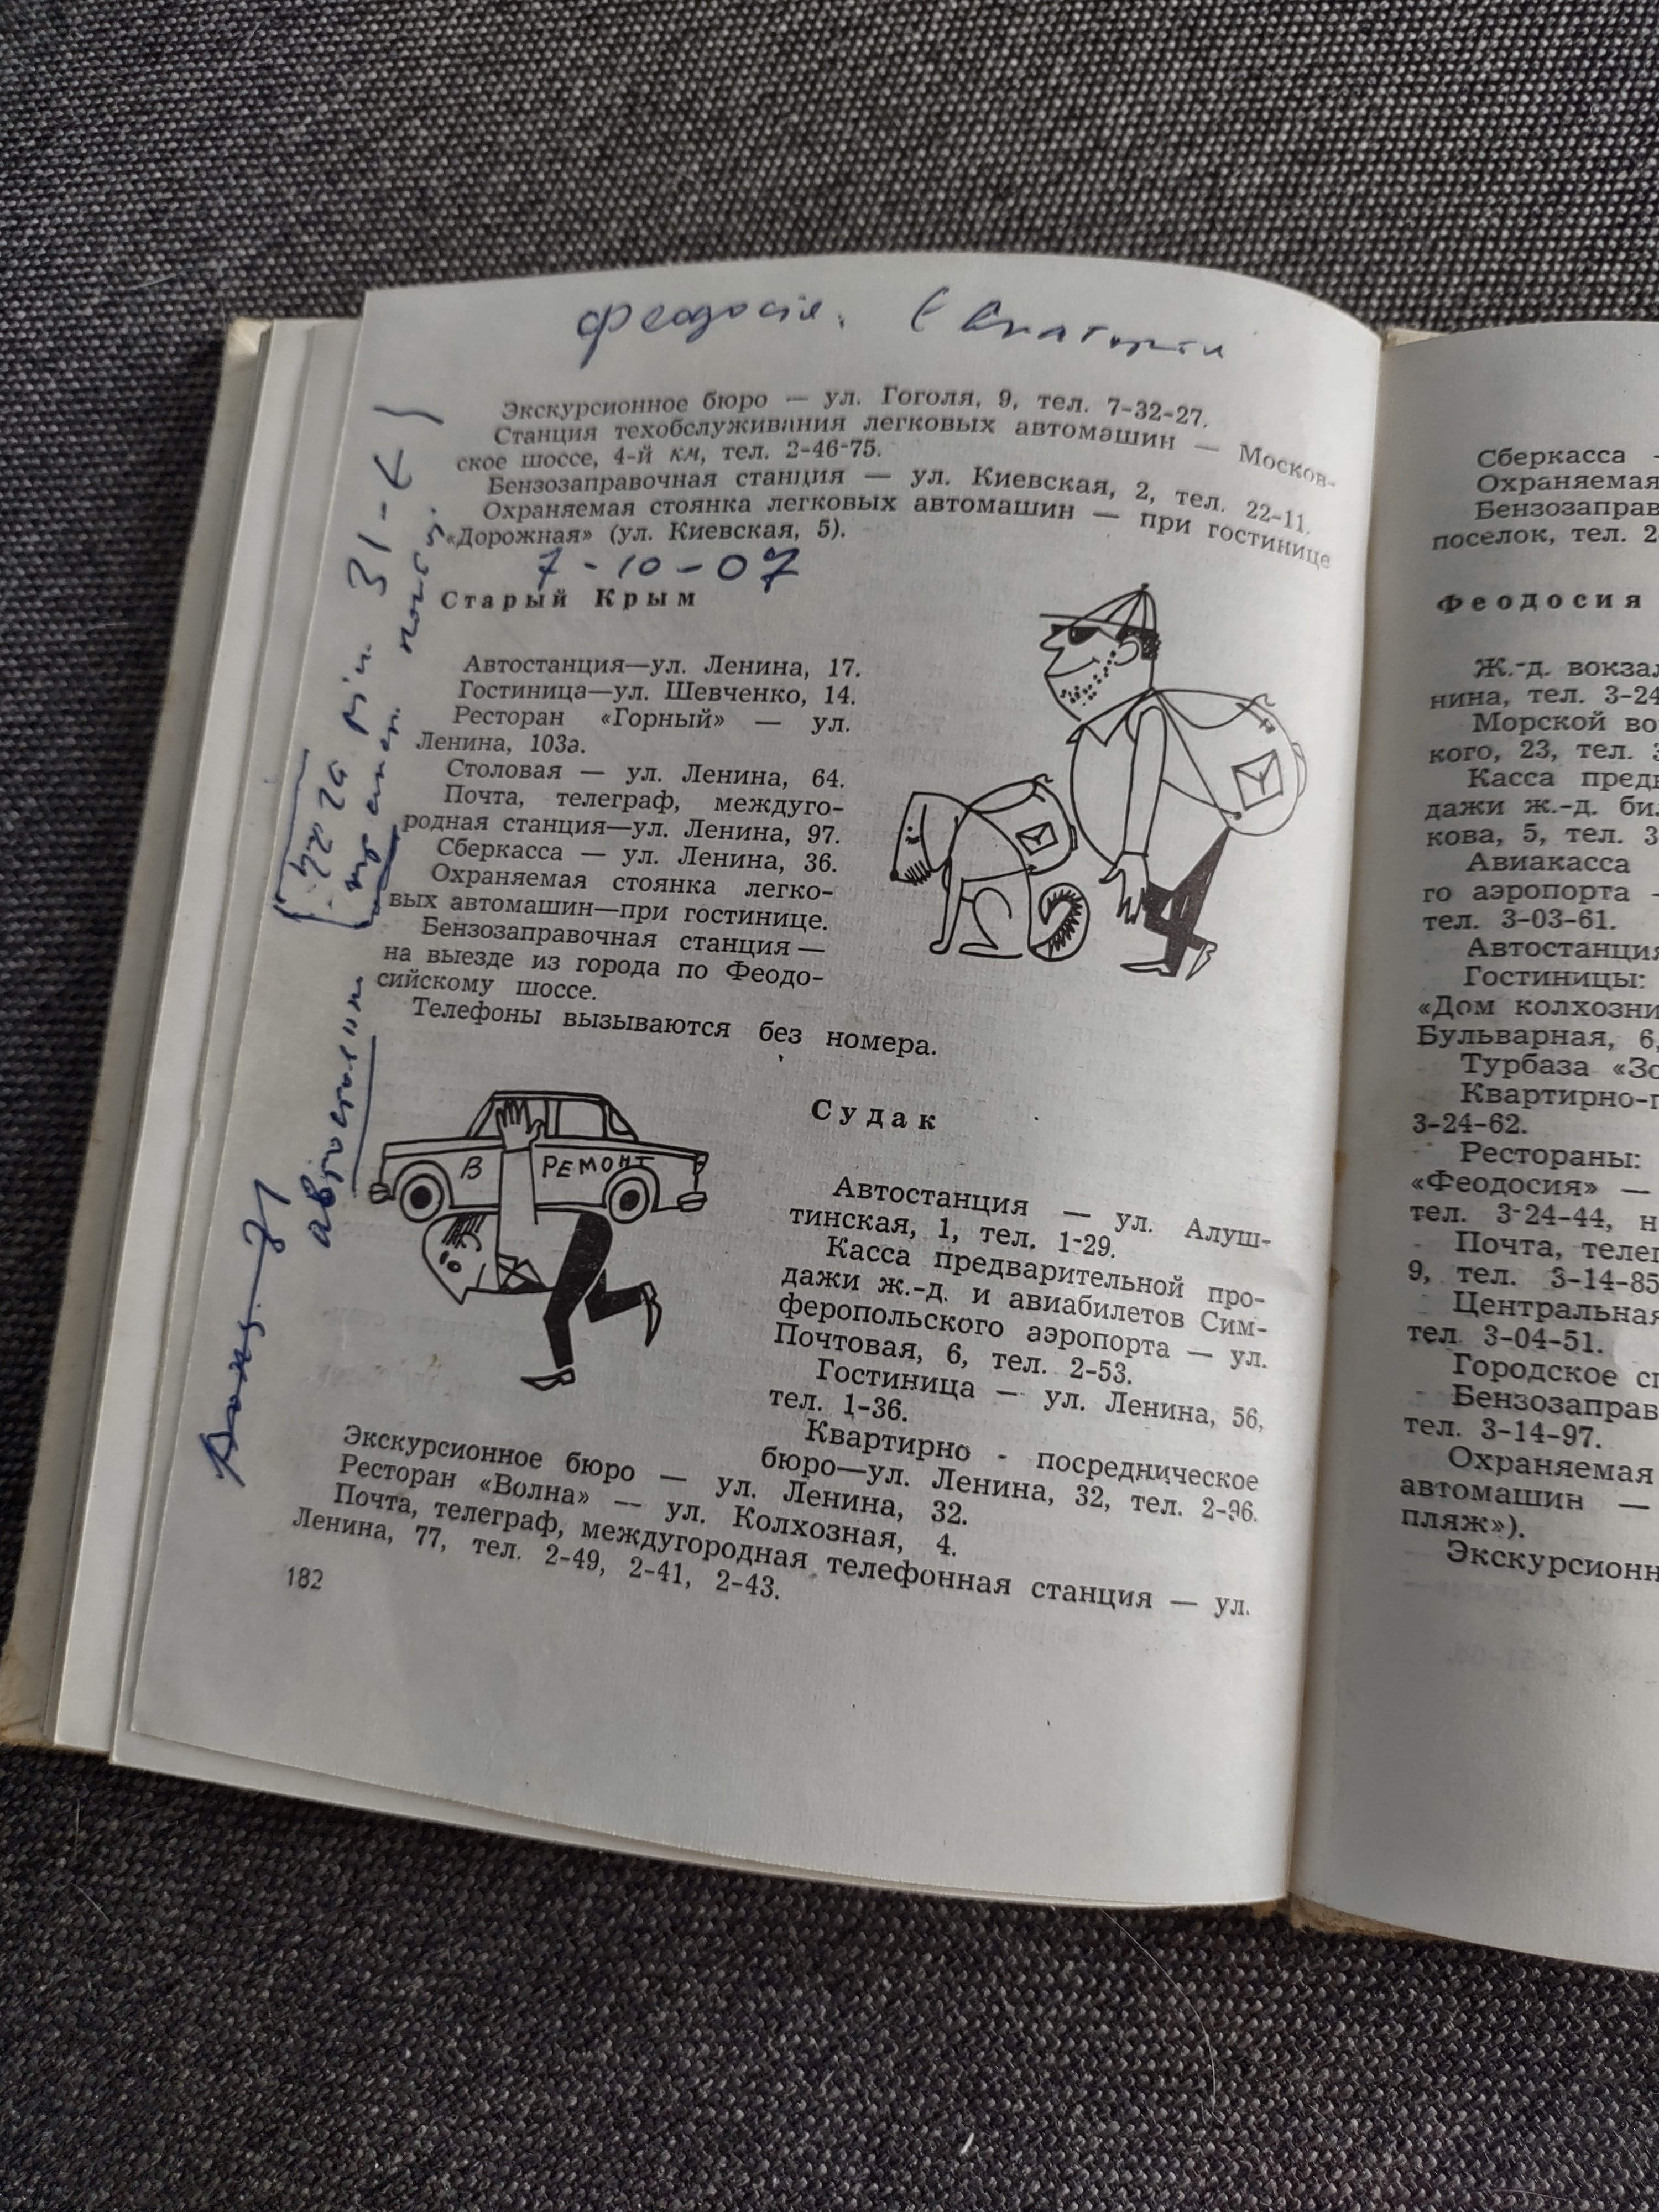 Феодосія.
Экскурсионное бюро — ул. Гоголя, 9, тел. 7-32-27.
Станция техобслуживания легковых автомашин — Москов-
ское шоссе, 4-й км, тел. 2-46-75.
Бензозаправочная станция — ул. Киевская, 2, тел. 22-11.
Охраняемая стоянка легковых автомашин — при гостинице
«Дорожная» (ул. Киевская, 5).
7-10-07
Старый Крым
Автостанция—ул. Ленина, 17.
Гостиница—ул. Шевченко, 14.
Ресторан «Горный» — ул.
Ленина, 103а.
Столовая — ул. Ленина, 64.
Почта, телеграф, междуго-
родная станция—ул. Ленина, 97.
Сберкасса — ул. Ленина, 36.
Охраняемая стоянка легко-
вых автомашин—при гостинице.
Бензозаправочная станция —
на выезде из города по Феодо-
сийскому шоссе.
Телефоны вызываются без номера.
В РЕМОНТ
Судак
Автостанция — ул. Алуш-
тинская, 1, тел. 1-29.
Касса предварительной про-
дажи ж.-д. и авиабилетов Сим-
феропольского аэропорта — ул.
Почтовая, 6, тел. 2-53.
Гостиница — ул. Ленина, 56,
тел. 1-36.
Квартирно - посредническое
бюро—ул. Ленина, 32, тел. 2-96.
Экскурсионное бюро — ул. Ленина, 32.
Ресторан «Волна» — ул. Колхозная, 4.
Почта, телеграф, междугородная телефонная станция — ул.
Ленина, 77, тел. 2-49, 2-41, 2-43.
182
Сберкасса —
Охраняемая
Бензозаправ
поселок, тел. 2
Феодосия
Ж.-д. вокзал
нина, тел. 3-24
Морской во
кого, 23, тел. 3
Касса пред
дажи ж.-д. бил
кова, 5, тел. 3
Авиакасса
го аэропорта —
тел. 3-03-61.
Автостанция
Гостиницы:
«Дом колхозни
Бульварная, 6,
Турбаза «Зо
Квартирно-п
3-24-62.
Рестораны:
«Феодосия» —
тел. 3-24-44, н
Почта, телег
9, тел. 3-14-85
Центральная
тел. 3-04-51.
Городское сп
Бензозаправ
тел. 3-14-97.
Охраняемая
автомашин —
пляж»).
Экскурсионн